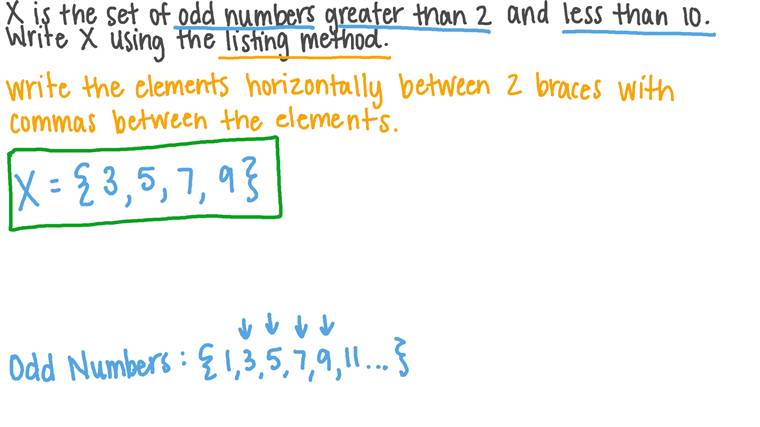 X is the set of odd numbers greater than 2 and less than 10.
Write X using the listing method.
Write the elements horizontally between 2 braces with
commas between the elements.
X = {3, 5, 7, 9}
Odd Numbers: {1, 3, 5, 7, 9, 11...}